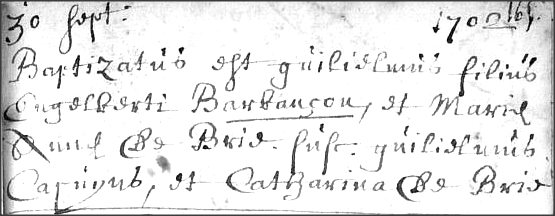 30 sept: 1702
Baptizatus est guilielmus filius
Engelberti Barkançon, et Mariæ
Annæ De Brie. susc: guilielmus
Capuyns, et Catharina De Brie